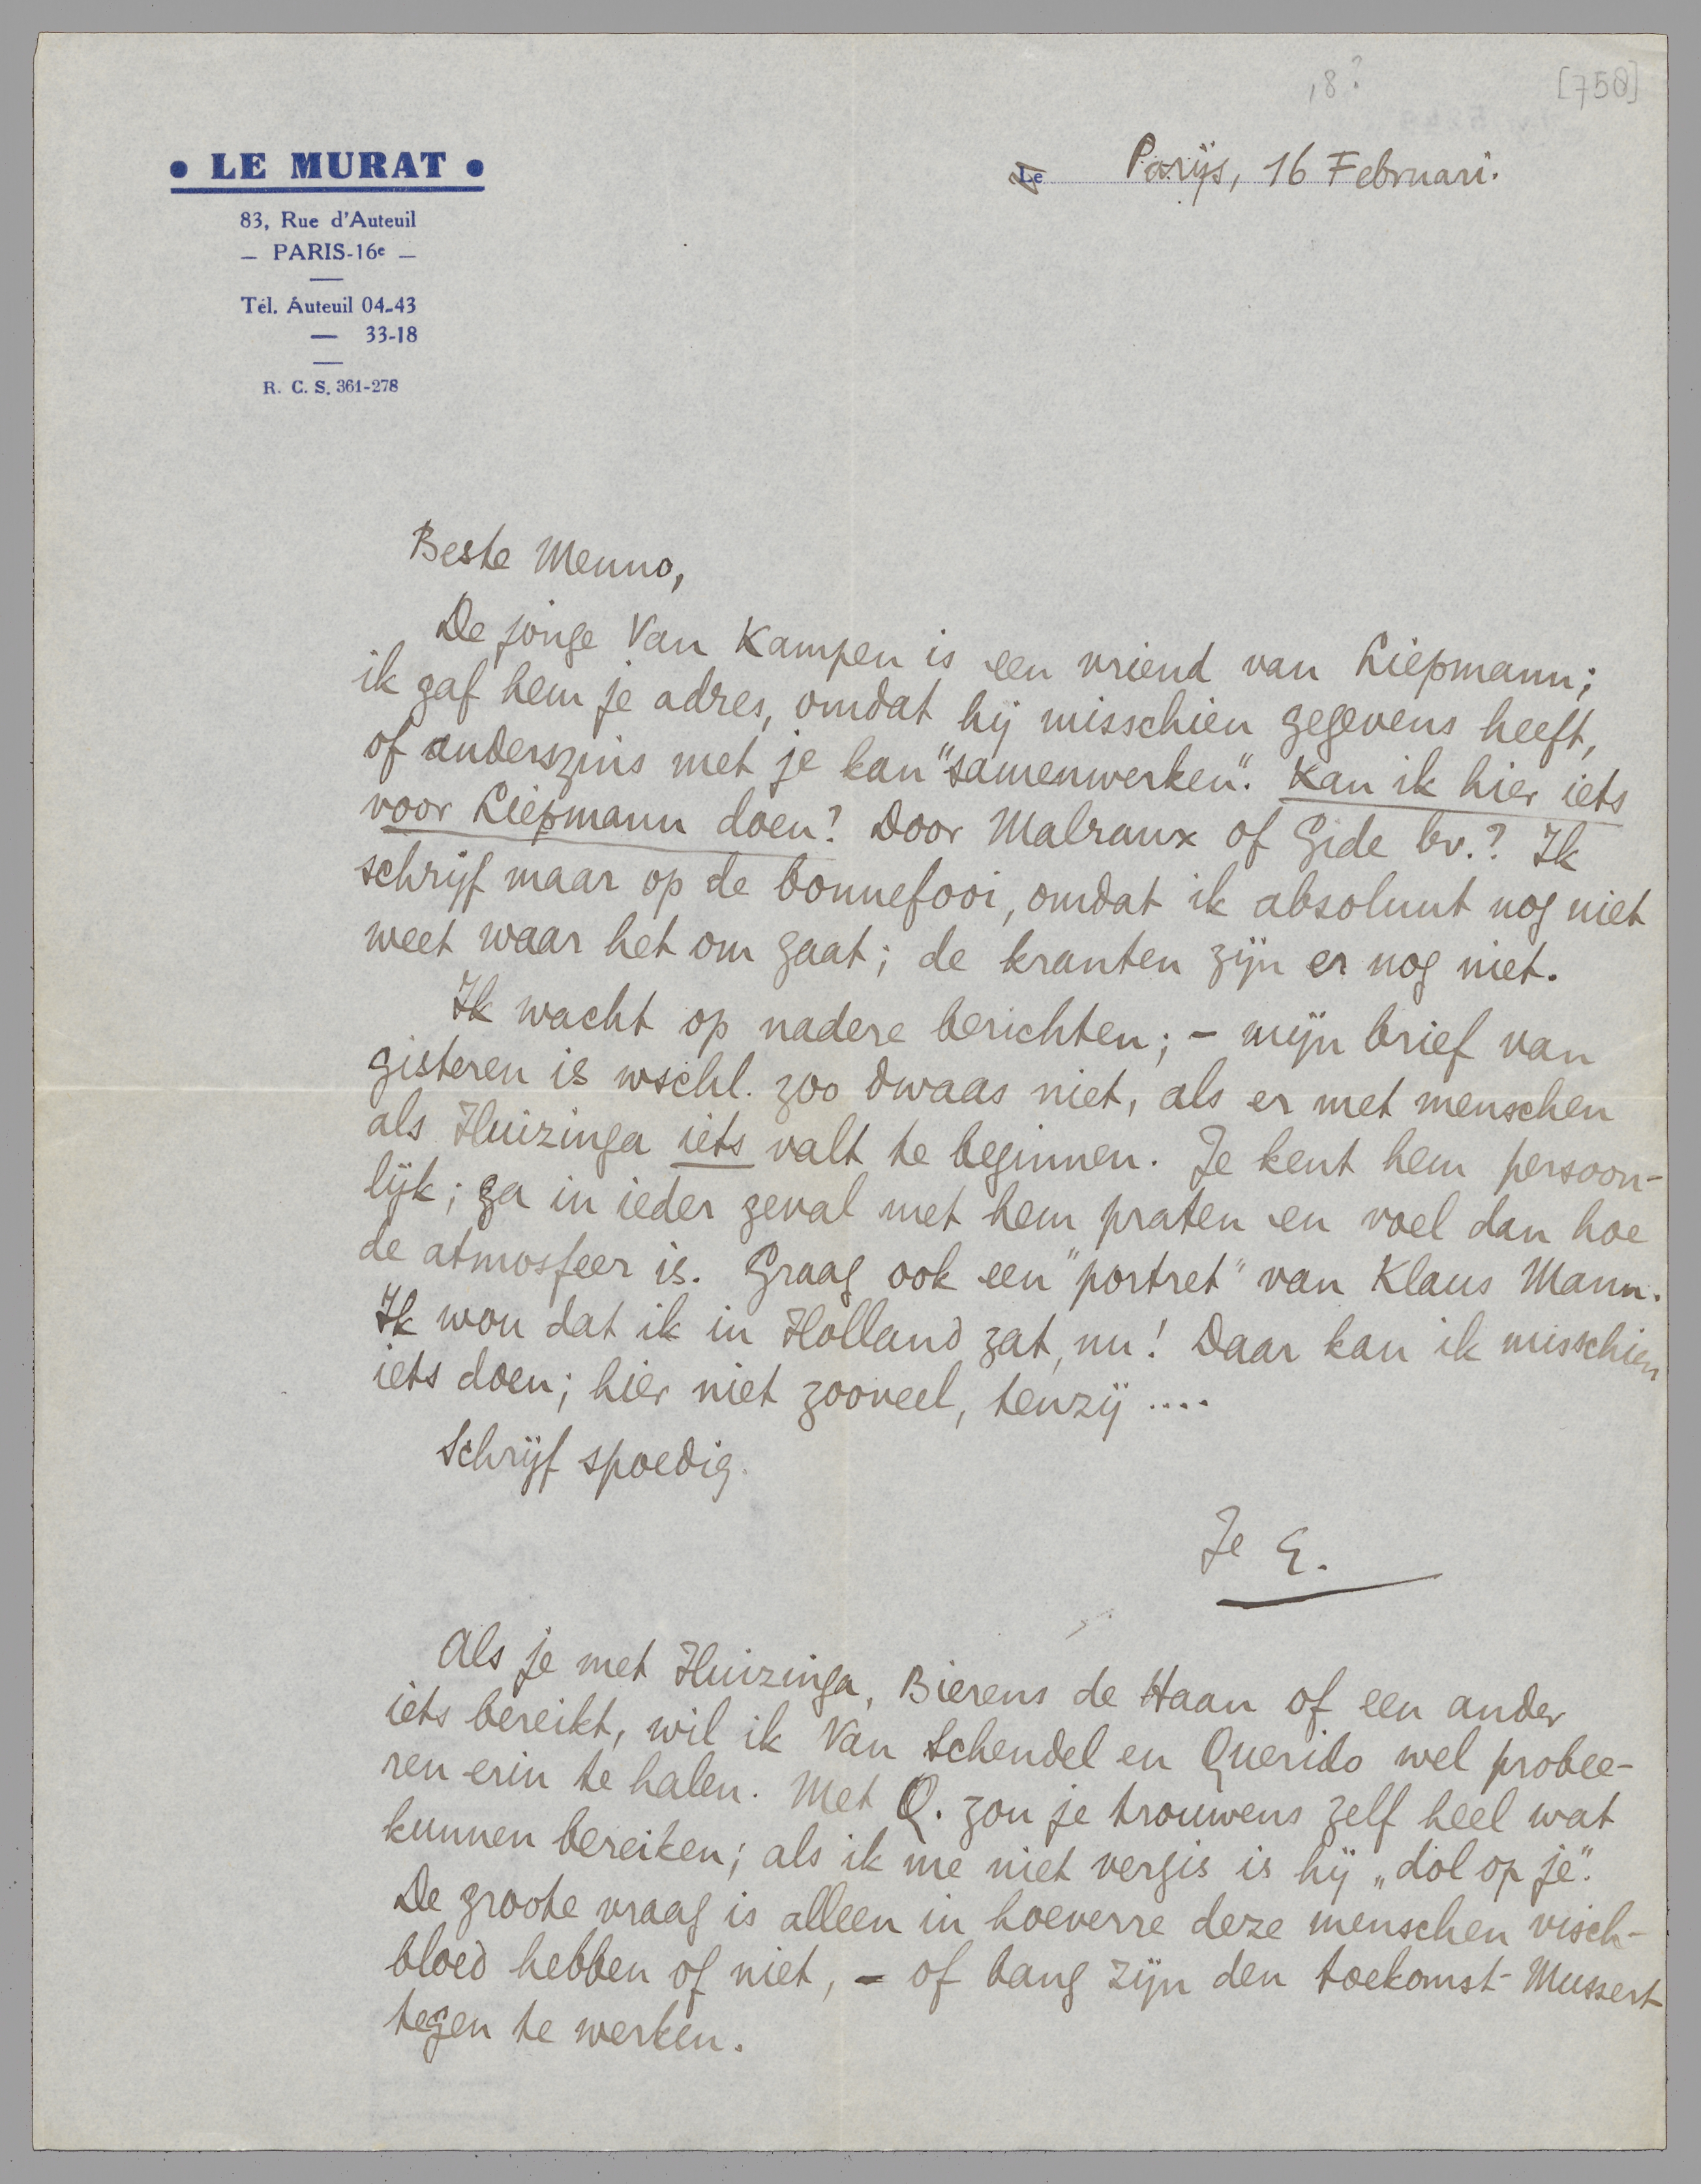 ,8?
[758]
• LE MURAT •
83, Rue d'Auteuil
— PARIS-16e —
Tél. Auteuil 04-43
— 33-18
R. C. S. 361-278
Le Parijs, 16 Februari.
Beste Menno,
De jonge Van Kampen is een vriend van Liepmann;
ik gaf hem je adres, omdat hij misschien gegevens heeft,
of anderszins met je kan "samenwerken". Kan ik hier iets
voor Liepmann doen? Door Malraux of Gide bv.? Ik
schrijf maar op de bonnefooi, omdat ik absoluut nog niet
weet waar het om gaat; de kranten zijn er nog niet.
Ik wacht op nadere berichten; – mijn brief van
gisteren is wschl. zoo dwaas niet, als er met menschen
als Huizinga iets valt te beginnen. Je kent hem persoon-
lijk; ga in ieder geval met hem praten en voel dan hoe
de atmosfeer is. Graag ook een "portret" van Klaus Mann.
Ik wou dat ik in Holland zat, nu! Daar kan ik misschien
iets doen; hier niet zooveel, tenzij ....
Schrijf spoedig.
Je E.
Als je met Huizinga, Bierens de Haan of een ander
iets bereikt, wil ik Van Schendel en Querido wel probee-
ren erin te halen. Met Q. zou je trouwens zelf heel wat
kunnen bereiken; als ik me niet vergis is hij „dol op je".
De groote vraag is alleen in hoeverre deze menschen visch-
bloed hebben of niet, – of bang zijn den toekomst-Mussert
tegen te werken.